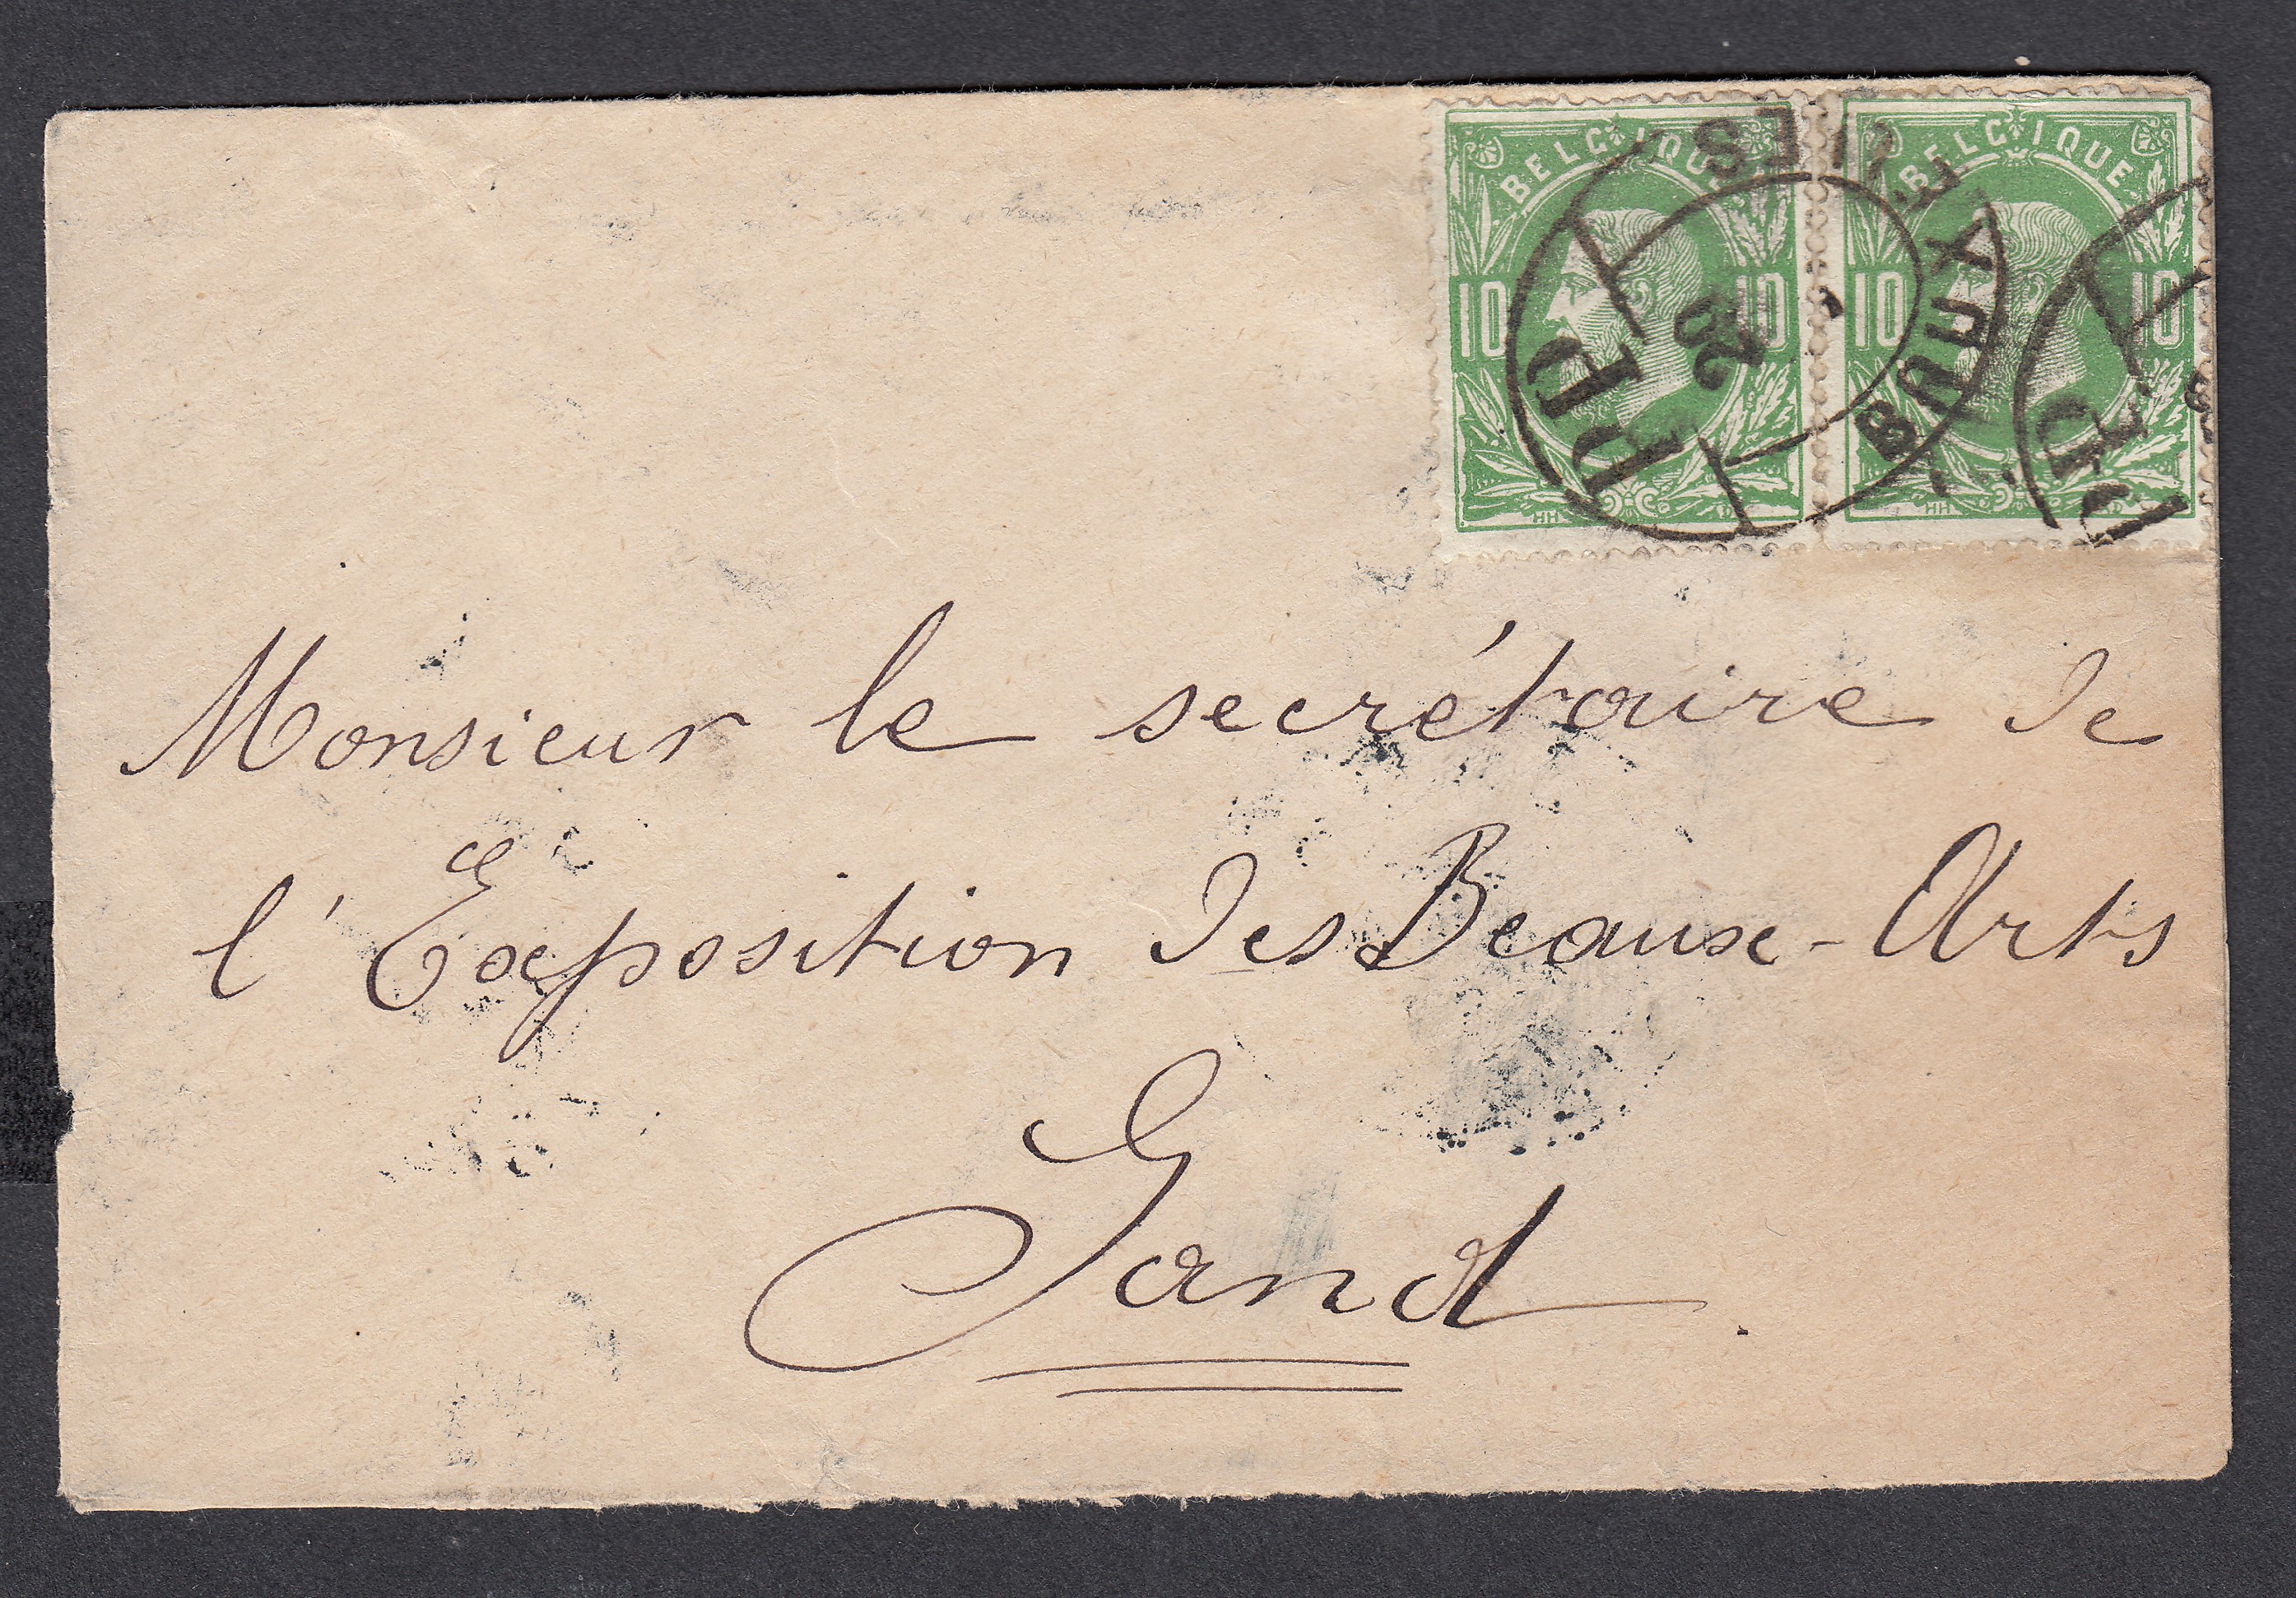 BELGIQUE BELGIQUE
10 10 10 10
BRUXELLES
20
Monsieur le secrétaire de
l'Exposition des Beaux-Arts
Gand.